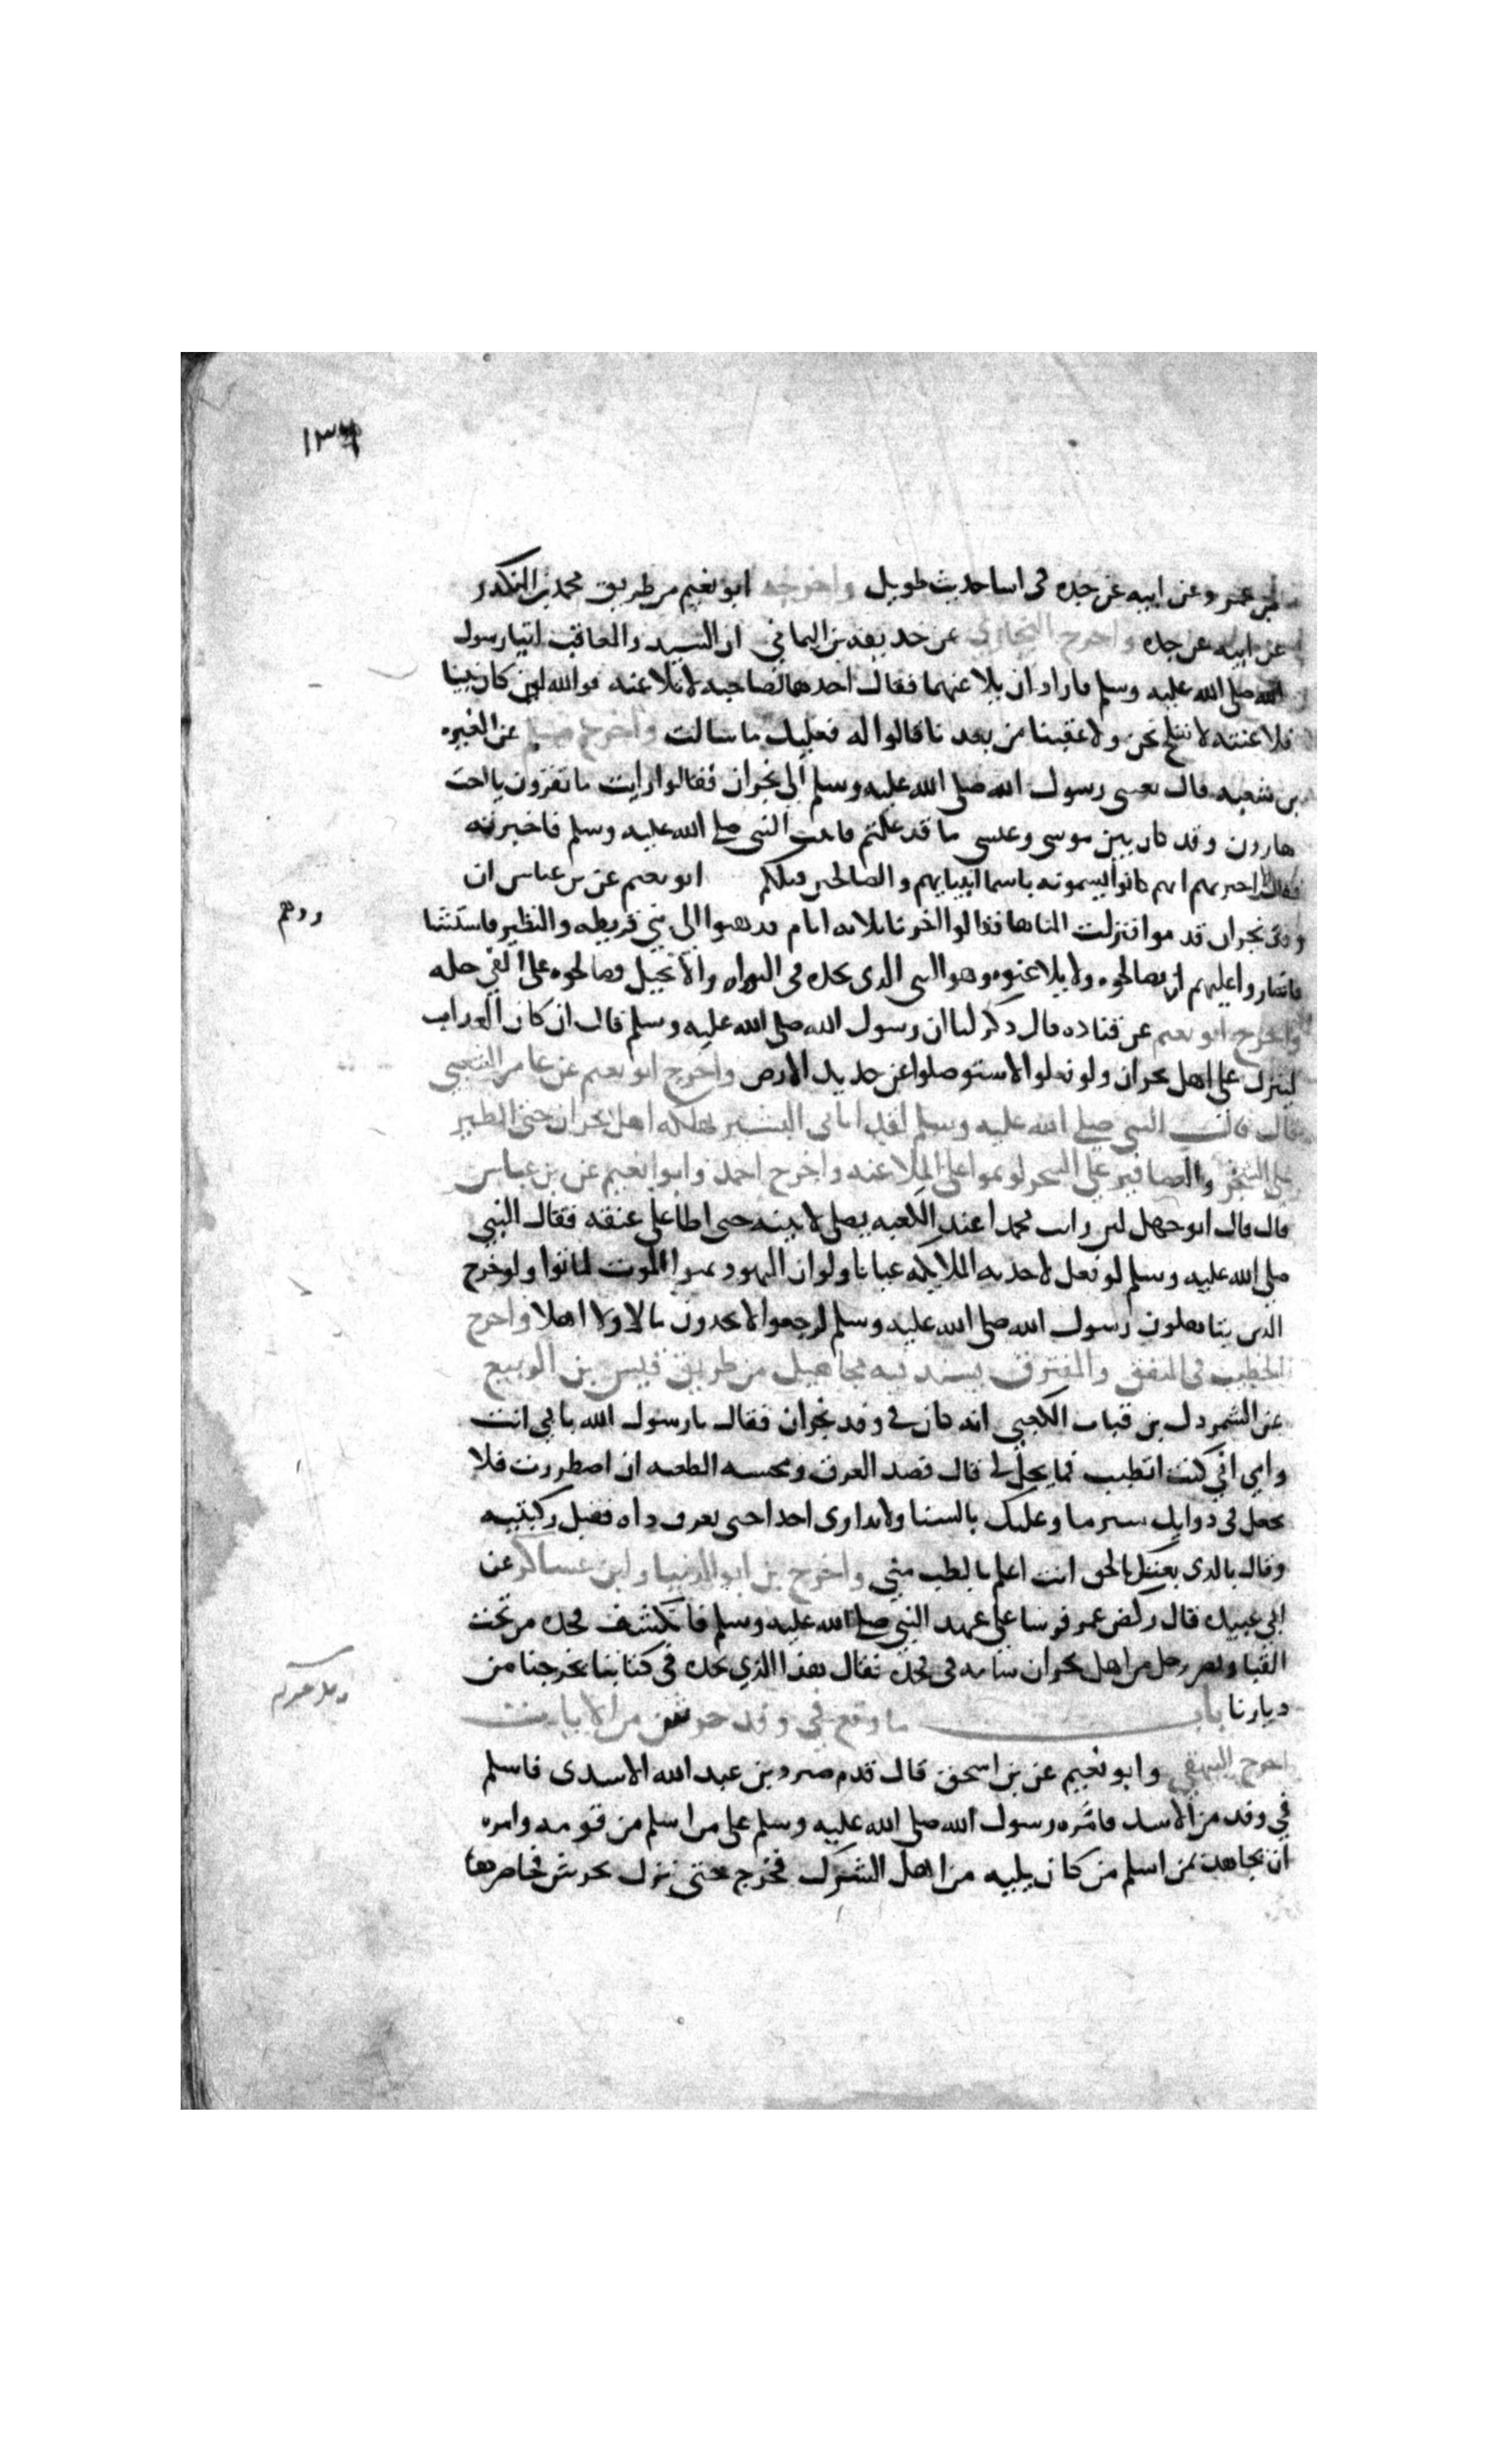 ١٣٩
عمر وعن ابيه عن جده في اسا حديث طويل واخرجه ابو نعيم من طريق محمد بن المنكدر
عن ابيه عن جده واخرج البخاري عن حذيفه بن اليماني ان السيد والعاقب اتيا رسول
الله صلى الله عليه وسلم فاراد ان يلاعنهما فقال احدهما لصاحبه لا تلاعنه فوالله لين كان نبيا
فلاعنته لا نفلح نحن ولا عقبنا من بعدنا قالوا له فعليك ما سالت واخرج مسلم عن المغيره
بن شعبه قال بعثني رسول الله صلى الله عليه وسلم الى نجران فقالوا ارايت ما تقرون يا اخت
هارون وقد كان بين موسى وعيسى ما قد علمتم فاتيت النبي صلى الله عليه وسلم فاخبرته
فقال اخبرتهم انهم كانوا يسمونه باسما انبيايهم والصالحين قبلكم ابو نعيم عن بن عباس ان
وفد نجران قدموا فنزلت المباهلة فقالوا اخرنا ثلاثه ايام فذهبوا الى بني قريظه والنظير فاستشا
ردهم
فاشاروا عليهم ان يصالحوه ولا يلاعنوه وهو النبي الذي نجده في التوراه والانجيل فصالحوه على الفي حله
واخرج ابو نعيم عن قتاده قال ذكر لنا ان رسول الله صلى الله عليه وسلم قال ان كان العذاب
لينزل على اهل نجران ولو فعلوا لاستوصلوا عن جديد الارض واخرج ابو نعيم عن عامر الشعبي
قال قال النبي صلى الله عليه وسلم لقد اتاني البشير بهلكه اهل نجران حتى الطير
على الشجر والعصافير على الشجر لو تموا على الملاعنه واخرج احمد وابوا نعيم عن بن عباس
قال قال ابو جهل لين رايت محمدا عند الكعبه يصلي لاتينه حتى اطا على عنقه فقال النبي
صلى الله عليه وسلم لو فعل لاخذته الملايكه عيانا ولو ان اليهود تمنوا الموت لماتوا ولو خرج
الذين يباهلون رسول الله صلى الله عليه وسلم لرجعوا لا يجدون مالا ولا اهلا واخرج
الخطيب في المتفق والمفترق بسند فيه مجاهيل من طريق قيس بن الربيع
عن الشمردل بن قباب الكعبي انه كان في وفد نجران فقال يا رسول الله بابي انت
وامي اني كنت اتطبب فما يحل لي قال فصد العرق ومحسه الطعنه ان اضطررت فلا
تجعل في دوايك شبرما وعليك بالسنا ولا تداوي احدا حتى تعرف داه فقبل ركبتيه
وقال بالذي بعثك بالحق انت اعلم بالطب مني واخرج بن ابو الدنيا وابن عساكر عن
ابي عبيده قال ركض عمر فرسا على عهد النبي صلى الله عليه وسلم فانكشف فخذه من تحت
القبا وبصر رجل من اهل نجران شامه في فخذه فقال هذا الذي نجده في كتابنا يخرجنا من
ديارنا باب ما وقع في وفد جرش من الايات
اخرج البيهقي وابو نعيم عن بن اسحق قال قدم صرد بن عبد الله الاسدى فاسلم
في وفد من الاسد فامره رسول الله صلى الله عليه وسلم على من اسلم من قومه وامره
ان يجاهد بمن اسلم من كان يليه من اهل الشرك فخرج حتى نزل بجرش فحاصرها